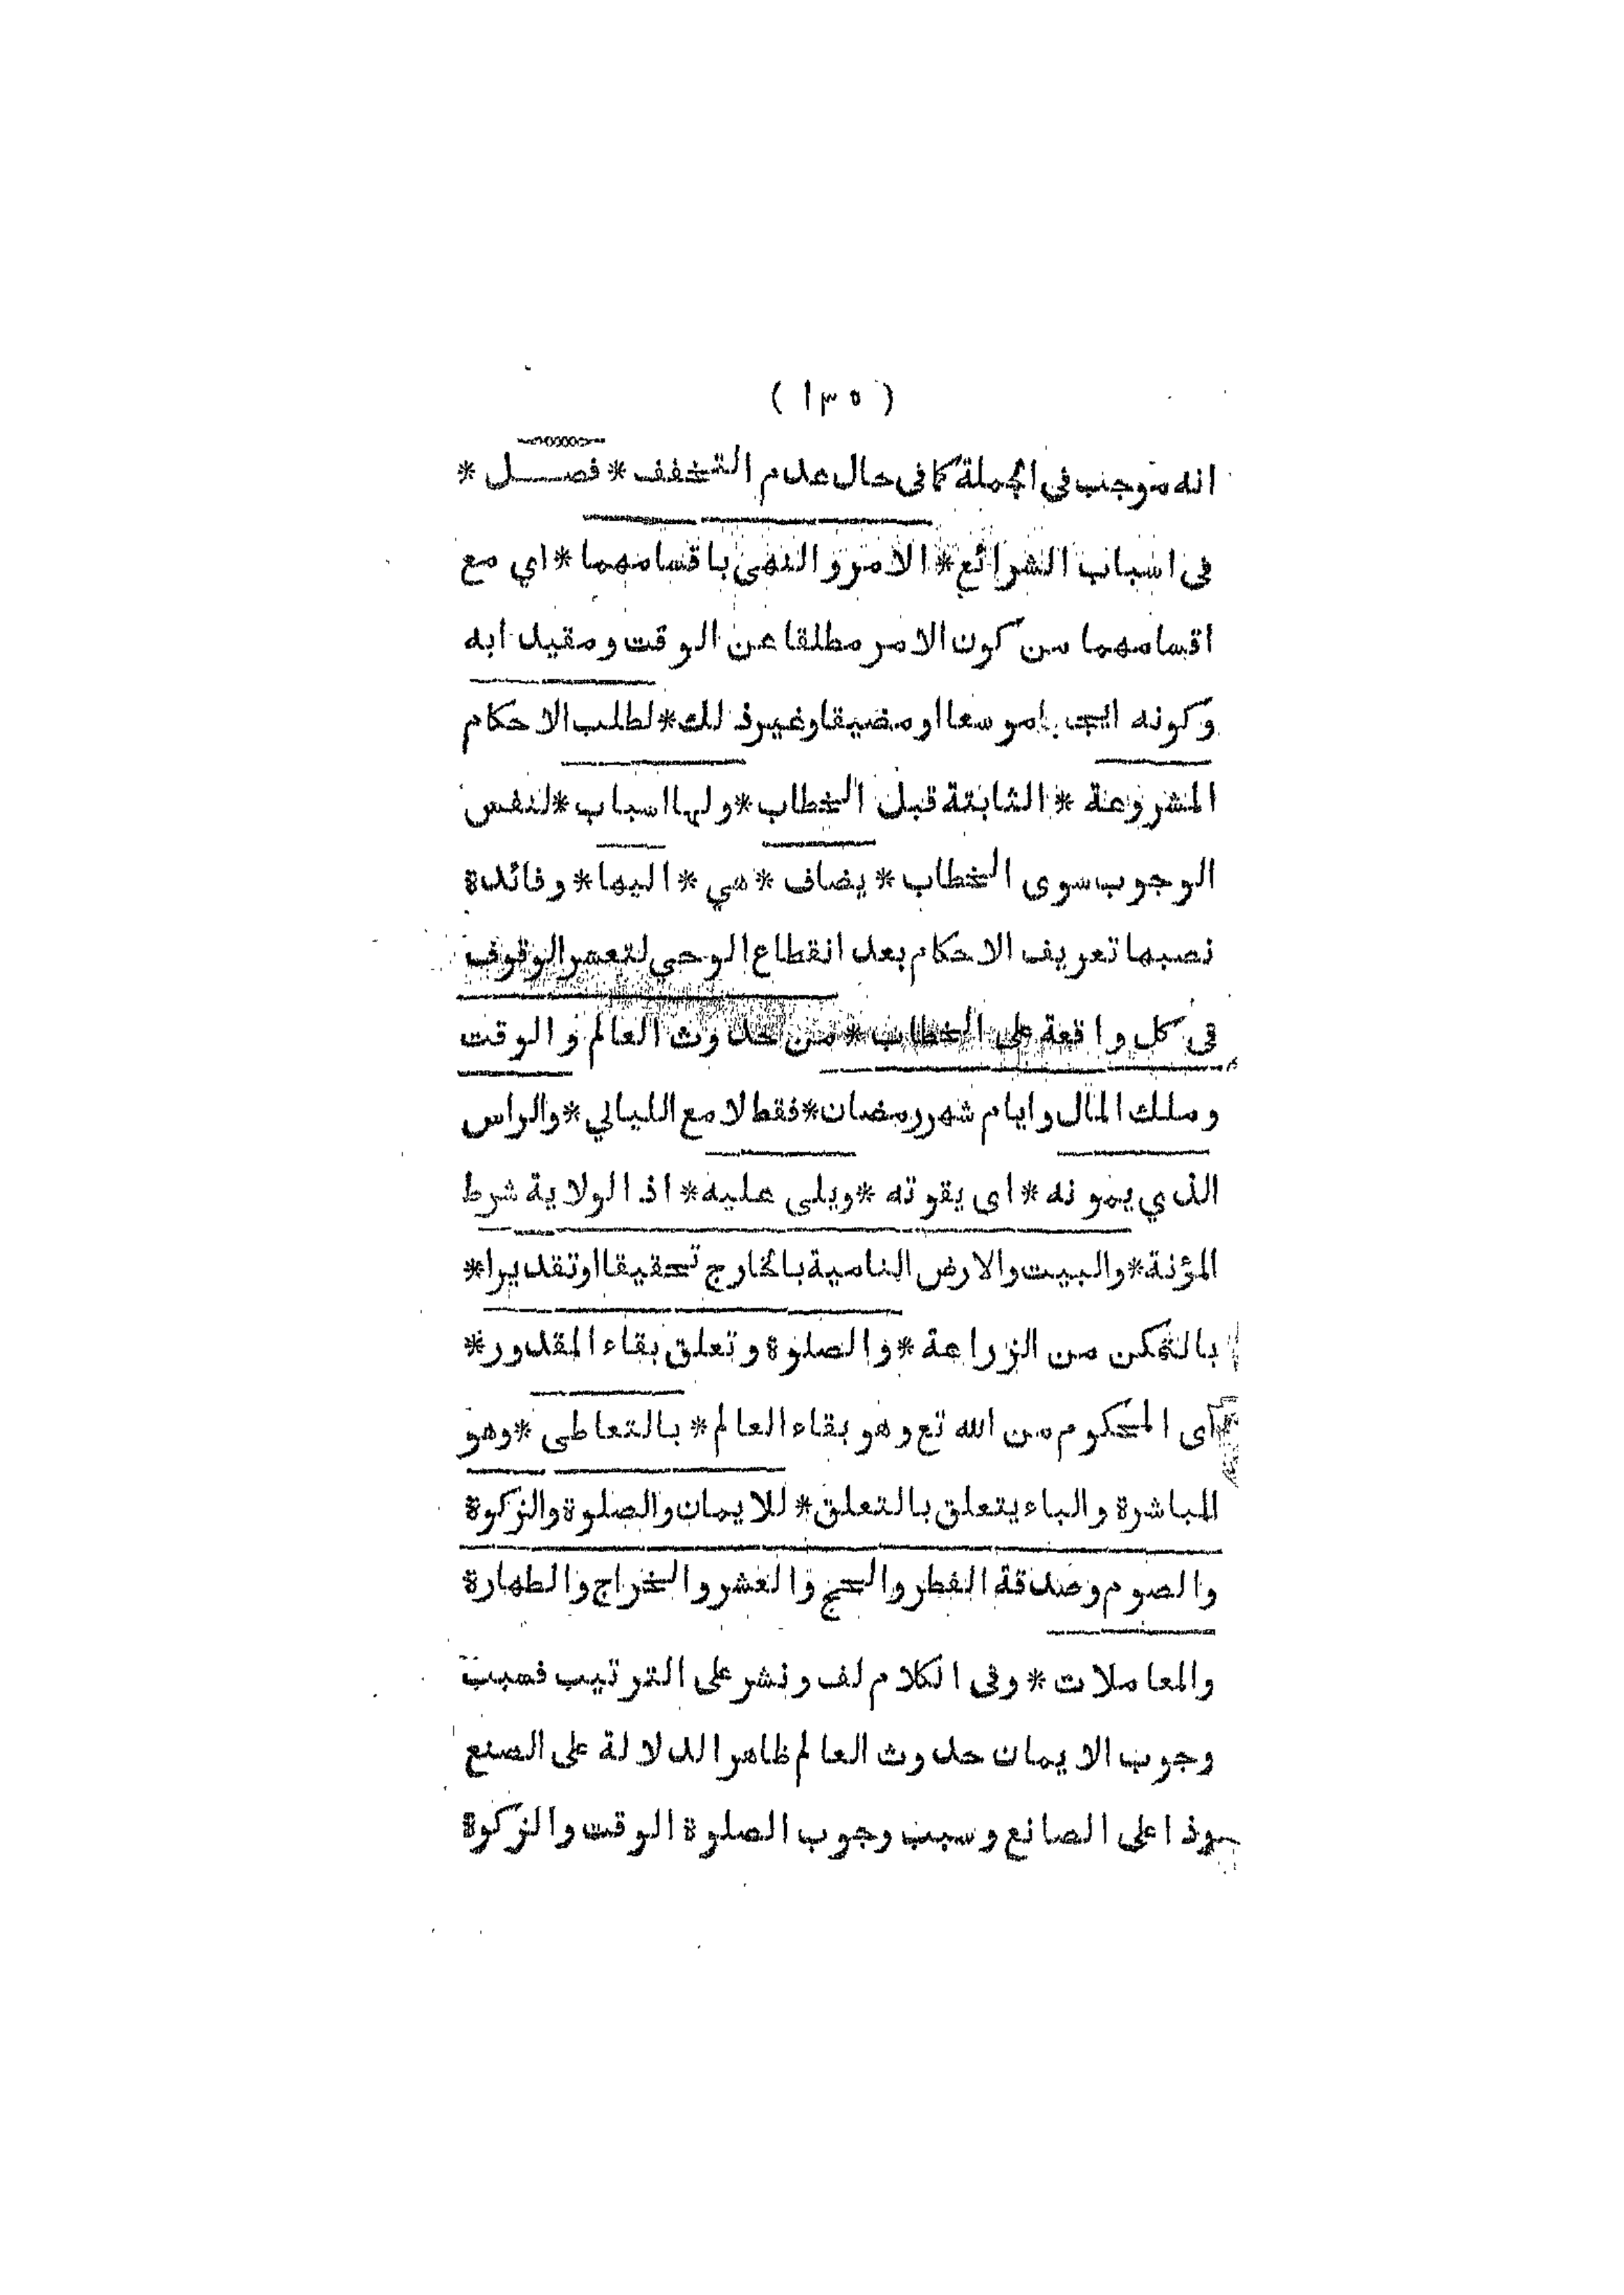 ( ١٣٥ )
انه موجب فى الجملة كما فى حال عدم التخفف * فصــل *
فى اسباب الشرائع * الامر والنهى باقسامهما * اي مع
اقسامهما من كون الامر مطلقا عن الوقت ومقيدا به
وكونه موسعا او مضيقا وغير ذلك * لطلب الاحكام
المشروعة * الثابتة قبل الخطاب * ولها اسباب * لنفس
الوجوب سوى الخطاب * يضاف * هي * اليها * وفائدة
نصبها تعريف الاحكام بعد انقطاع الوحي لتعسر الوقوف
فى كل واقعة على الخطاب * من حدوث العالم والوقت
وملك المال وايام شهر رمضان * فقط لا مع الليالي * والراس
الذي يمونه * اى يقوته * ويلى عليه * اذ الولاية شرط
المؤنة * والبيت والارض النامية بالخارج تحقيقا اوتقديرا *
بالتمكن من الزراعة * والصلوة وتعلق بقاء المقدور *
اى المحكوم من الله تع وهو بقاء العالم * بالتعاطى * وهو
المباشرة والباء يتعلق بالتعلق * للايمان والصلوة والزكوة
والصوم وصدقة الفطر والحج والعشر والخراج والطهارة
والمعاملات * وفى الكلام لف ونشر على الترتيب فسبب
وجوب الايمان حدوث العالم ظاهرا لدلالة على الصنع
وذا على الصانع وسبب وجوب الصلوة الوقت والزكوة